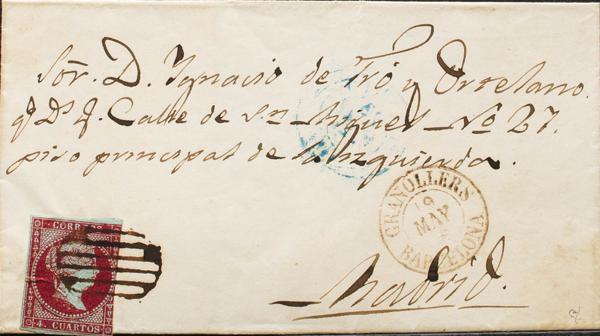 Sor. D. Ignacio de Tró y Ortolano.
q. D. g. Calle de Sn. Miguel - No 27.
piso principal de la izquierda.
GRANOLLERS
19
MAY
BARCELONA
Madrid.
CORREOS
4. CUARTOS